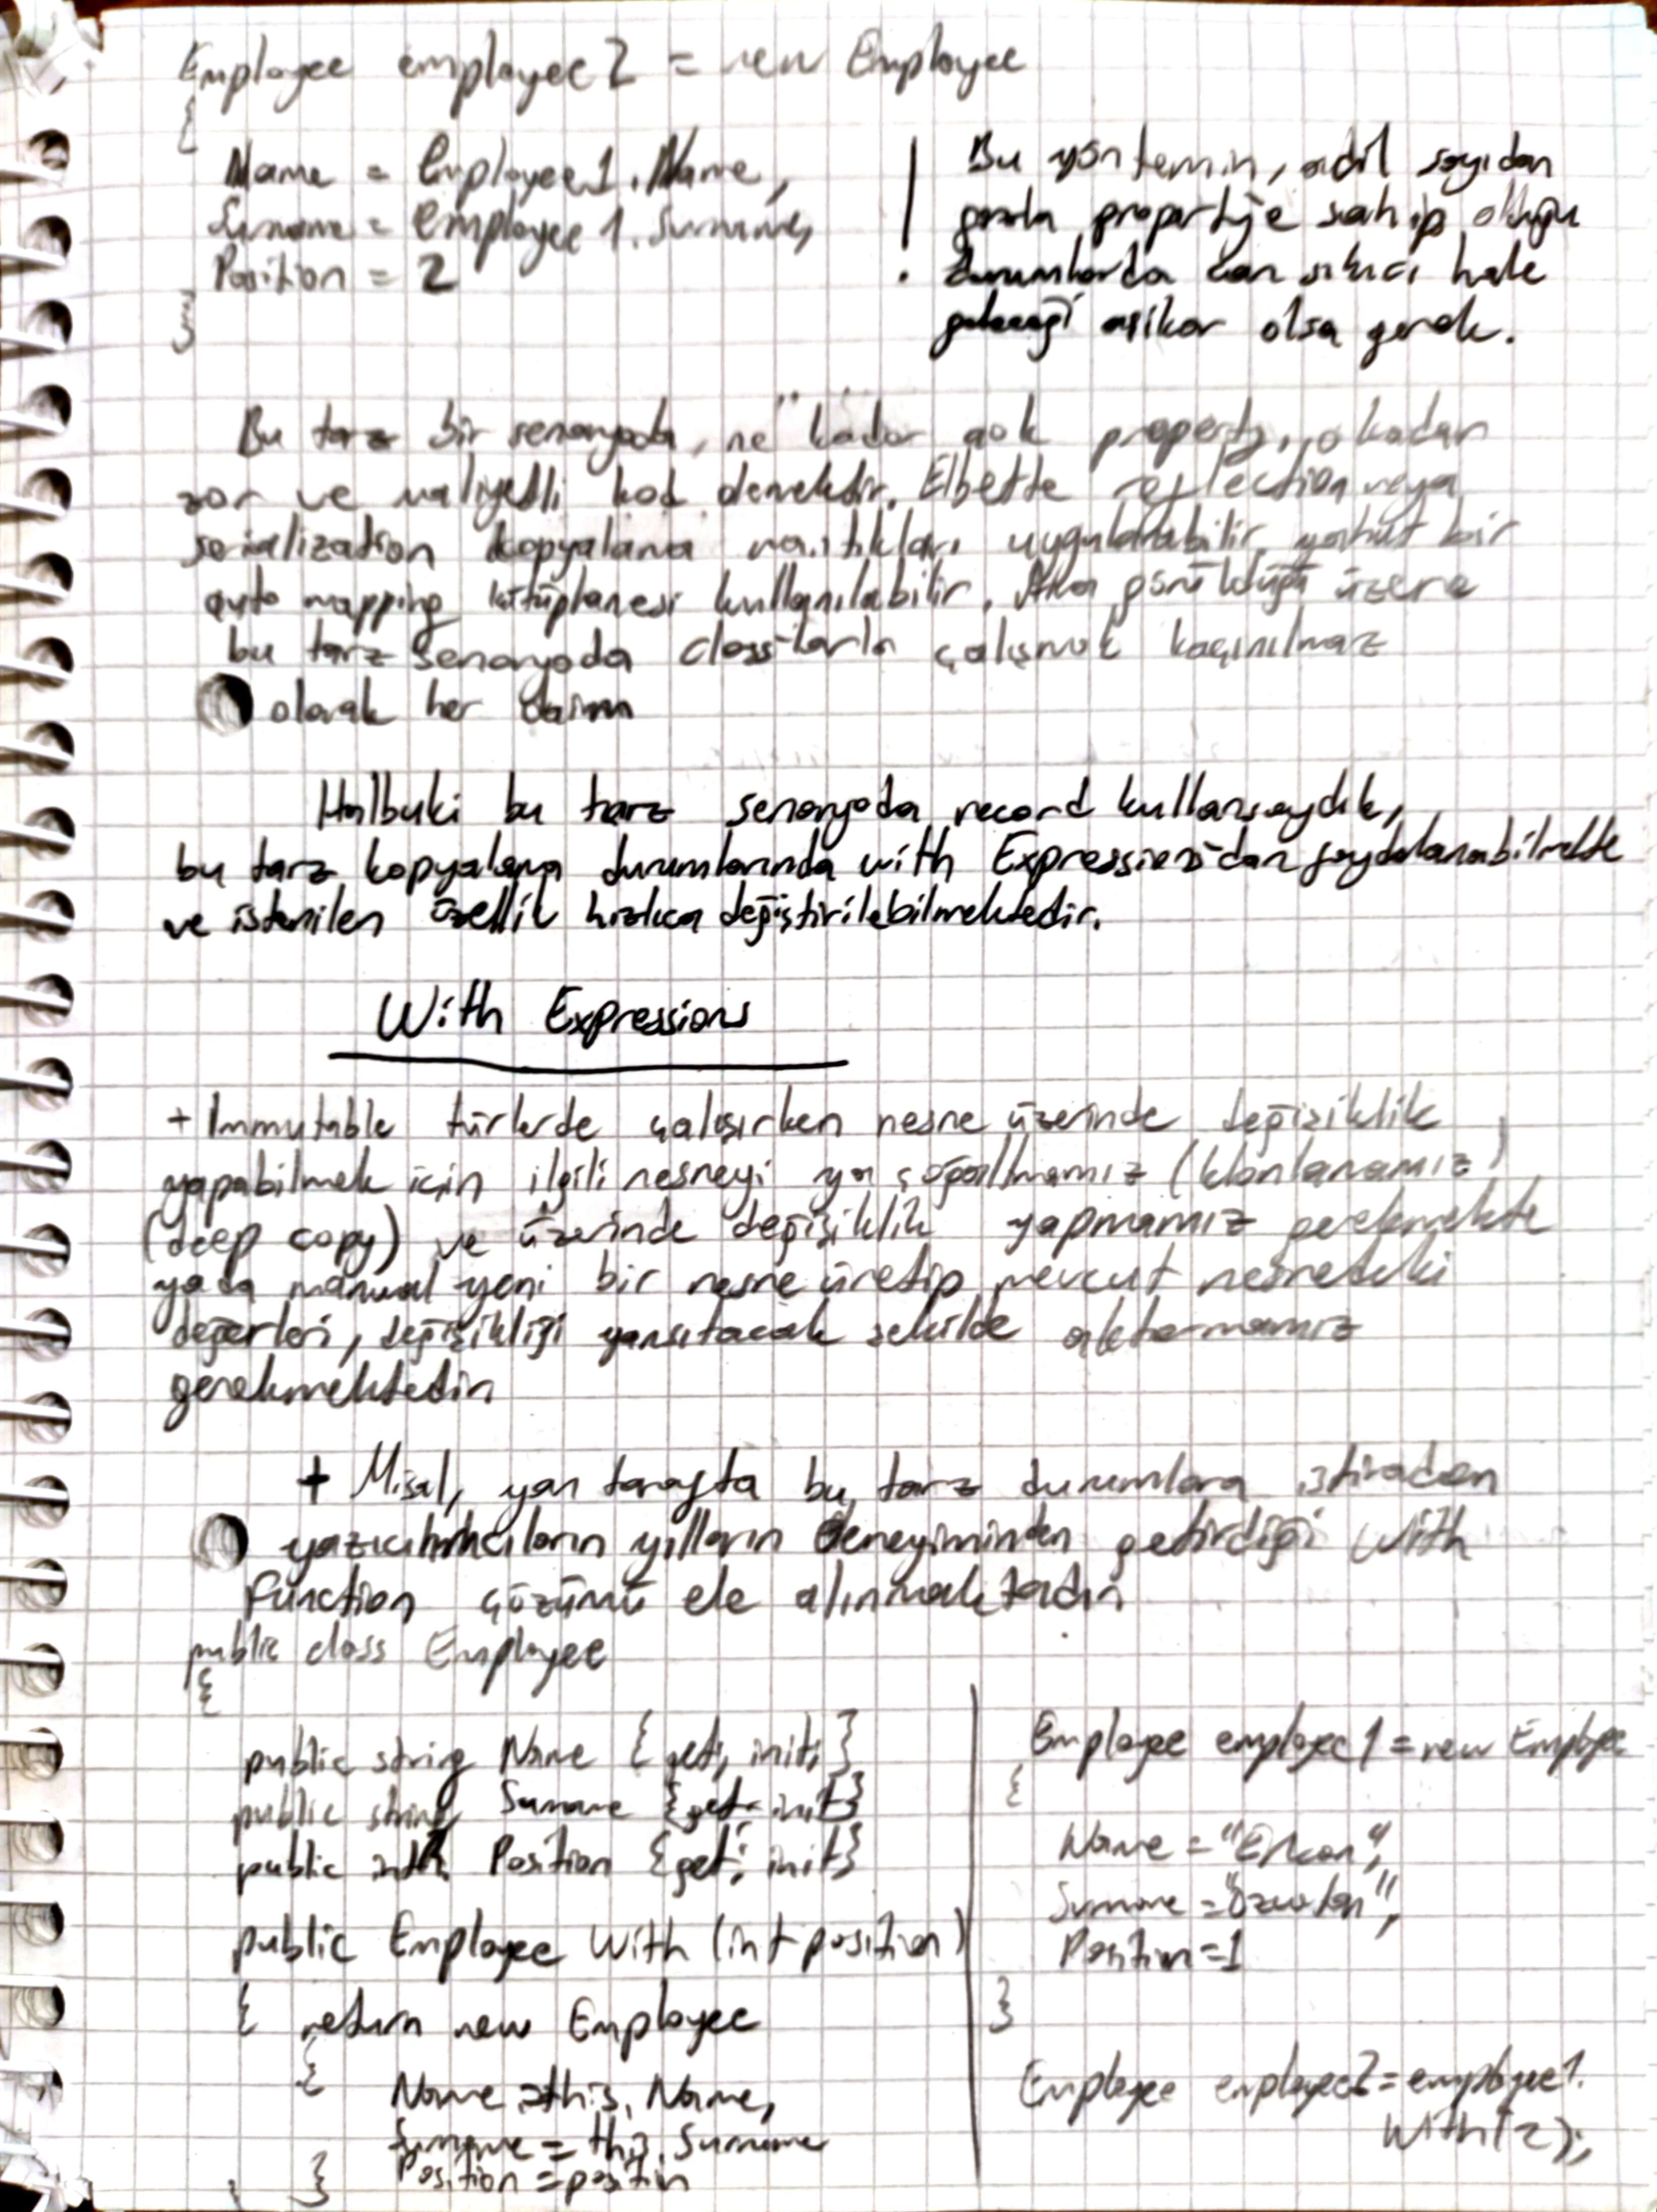 Employee employee2 = new Employee
{
Name = Employee1.Name,
Surname = employee1.Surname,
Position = 2
}
Bu yöntemin, adil sayıdan
fazla propertye sahip olduğu
durumlarda can sıkıcı hale
geleceği aşikar olsa gerek.
Bu tarz bir senaryoda, ne kadar çok property, o kadar
zor ve maliyetli kod demektir. Elbette reflection veya
serialization kopyalama mantıkları uygulanabilir yahut bir
auto mapping kütüphanesi kullanılabilir. Ama görüldüğü üzere
bu tarz senaryoda class'larla çalışmak kaçınılmaz
olarak her daim
Halbuki bu tarz senaryoda record kullansaydık,
bu tarz kopyalama durumlarında with Expressions'dan faydalanabilmekte
ve istenilen özellik hızlıca değiştirilebilmektedir.
With Expressions
+ Immutable türlerde çalışırken nesne üzerinde değişiklik
yapabilmek için ilgili nesneyi ya çoğaltmamız (klonlamamız)
(deep copy) ve üzerinde değişiklik yapmamız gerekmekte
yada manual yeni bir nesne üretip mevcut nesnedeki
değerleri, değişikliği yansıtacak şekilde aktarmamız
gerekmektedir
+ Misal, yan tarafta bu tarz durumlara istinaden
yazılımcıların yılların deneyiminden getirdiği With
Function çözümü ele alınmaktadır
public class Employee
{
public string Name {get; init;}
public string Surname {get; init}
public int Position {get; init}
public Employee With (int position)
{ return new Employee
{
Name = this.Name,
Surname = this.Surname
Position = position
}
Employee employee1 = new Employee
{
Name = "Erkan",
Surname = "Özvatan",
Position = 1
}
Employee employee2 = employee1.
With(2);